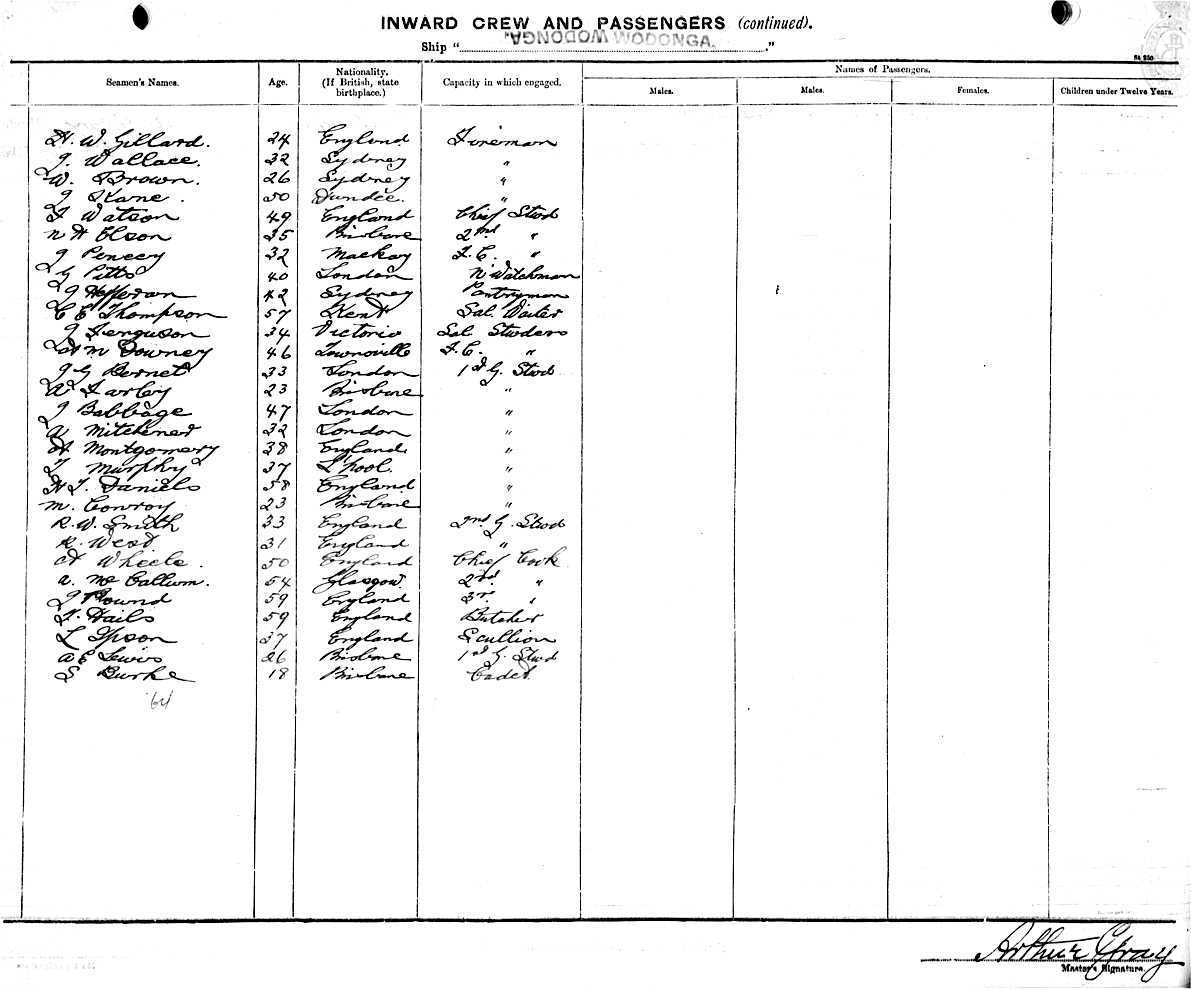 INWARD CREW AND PASSENGERS (continued).
Ship " WODONGA. WODONGA. "
Seamen's Names. Age. Nationality. (If British, state birthplace.) Capacity in which engaged. Names of Passengers.
Males. Males. Females. Children under Twelve Years.
H. W. Gillard. 24 England Fireman
J. Wallace. 32 Sydney "
W. Brown. 26 Sydney "
J Kane. 50 Dundee. "
F Watson 49 England Chief Stwd
N H Olson 35 Brisbane 2nd "
J Pencey 32 Mackay F.C. "
G Pitts 40 London N Watchman
J Heffernan 42 Sydney Pantryman
C E Thompson 57 Kent Sal. Waiter
J Ferguson 34 Victoria Sal Stwdess
M Downey 46 Townsville F.C. "
J G Bernet 33 London 1st G. Stwd
A Farley 23 Brisbane "
J Babbage 47 London "
A Mitchener 32 London "
H Montgomery 38 England "
T Murphy 37 L'pool. "
H J. Daniels 58 England "
M. Conroy 23 Brisbane "
R. W. Smith 33 England 2nd G. Stwd
R. West 31 England "
H Wheele. 50 England Chief Cook
A. McCallum. 54 Glasgow. 2nd "
J Round 59 England 3rd "
F. Hails 59 England Butcher
L Ipson 37 England Scullion
A E Lewis 26 Brisbane 1st G. Stwd
S Burke 18 Brisbane Cadet.
64
Arthur Gray
Master's Signature.